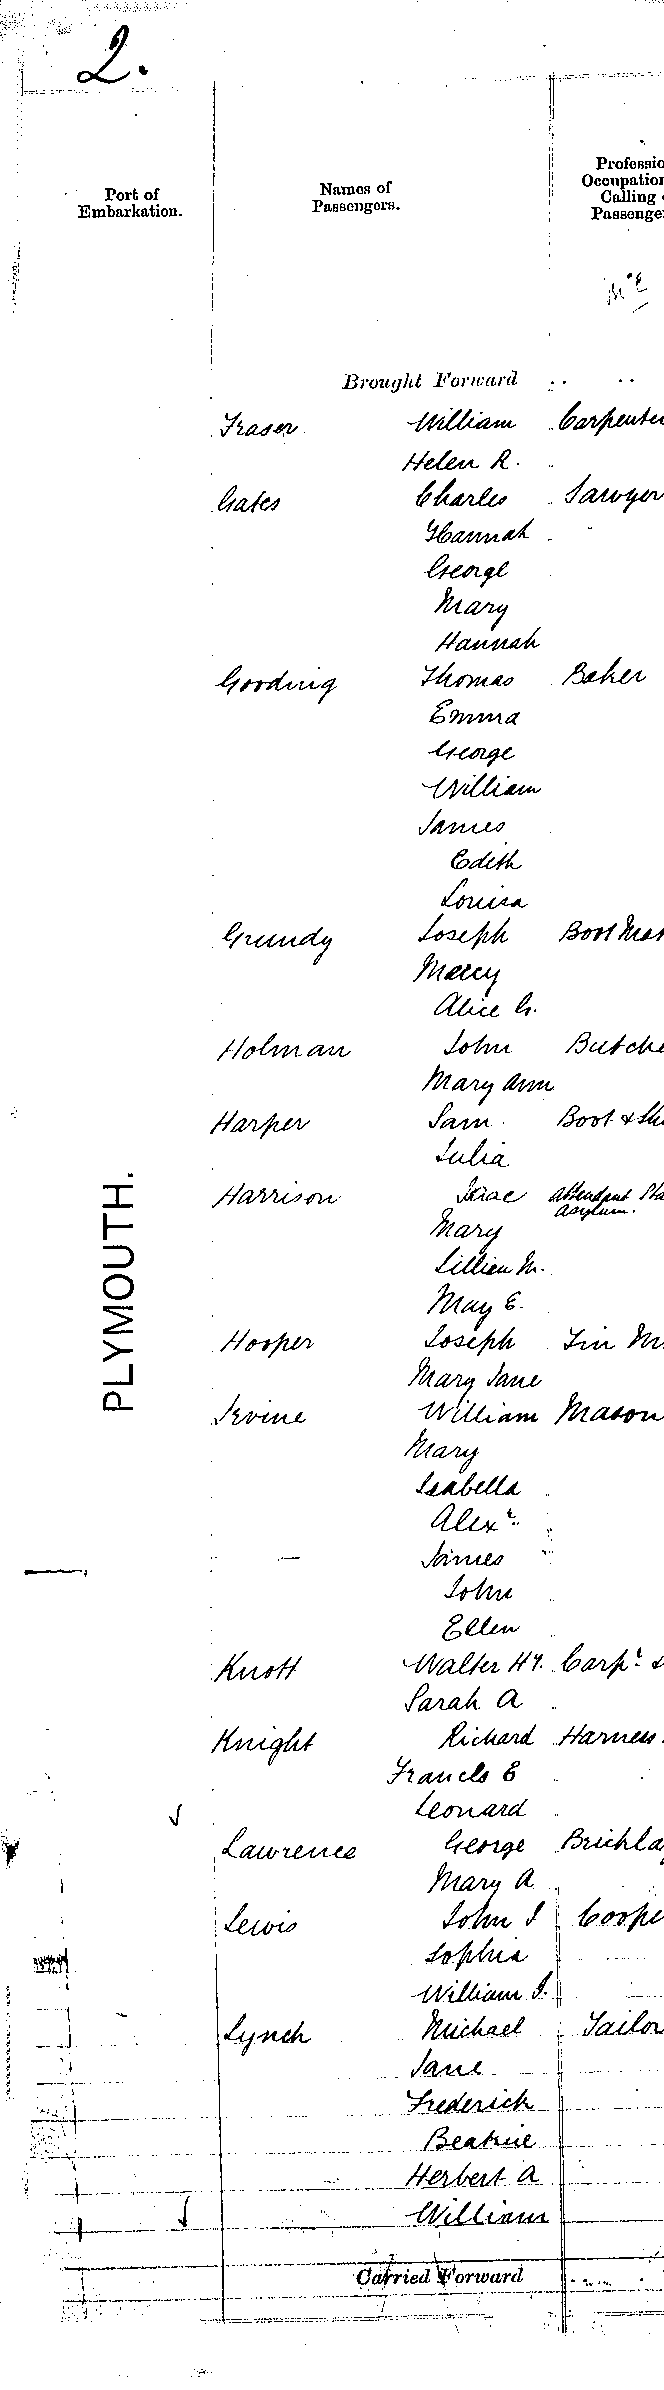 2.
Port of
Embarkation.
Names of
Passengers.
Professio
Occupation
Calling
Passenge
Brought Forward .. ..
Fraser William Carpenter
Helen R.
Gates Charles Sawyer
Hannah
George
Mary
Hannah
Gooding Thomas Baker
Emma
George
William
James
Edith
Louisa
Grundy Joseph Boot Ma
Mercy
Alice G.
Holman John Butche
Mary Ann
Harper Sam. Boot & Sh
Julia
Harrison Isaac Attendant Sta
Asylum.
Mary
Lillian M.
May E.
Hooper Joseph Tin M
Mary Jane
PLYMOUTH.
Irvine William Mason
Mary
Isabella
Alexr.
James
John
Ellen
Knott Walter Hy. Carpr. &
Sarah A
Knight Richard Harness
Francis E
Leonard
Lawrence George Brickla
Mary A
Lewis John J Coope
Sophia
William J.
Lynch Michael Tailor
Jane
Frederick
Beatrice
Herbert A
William
Carried Forward